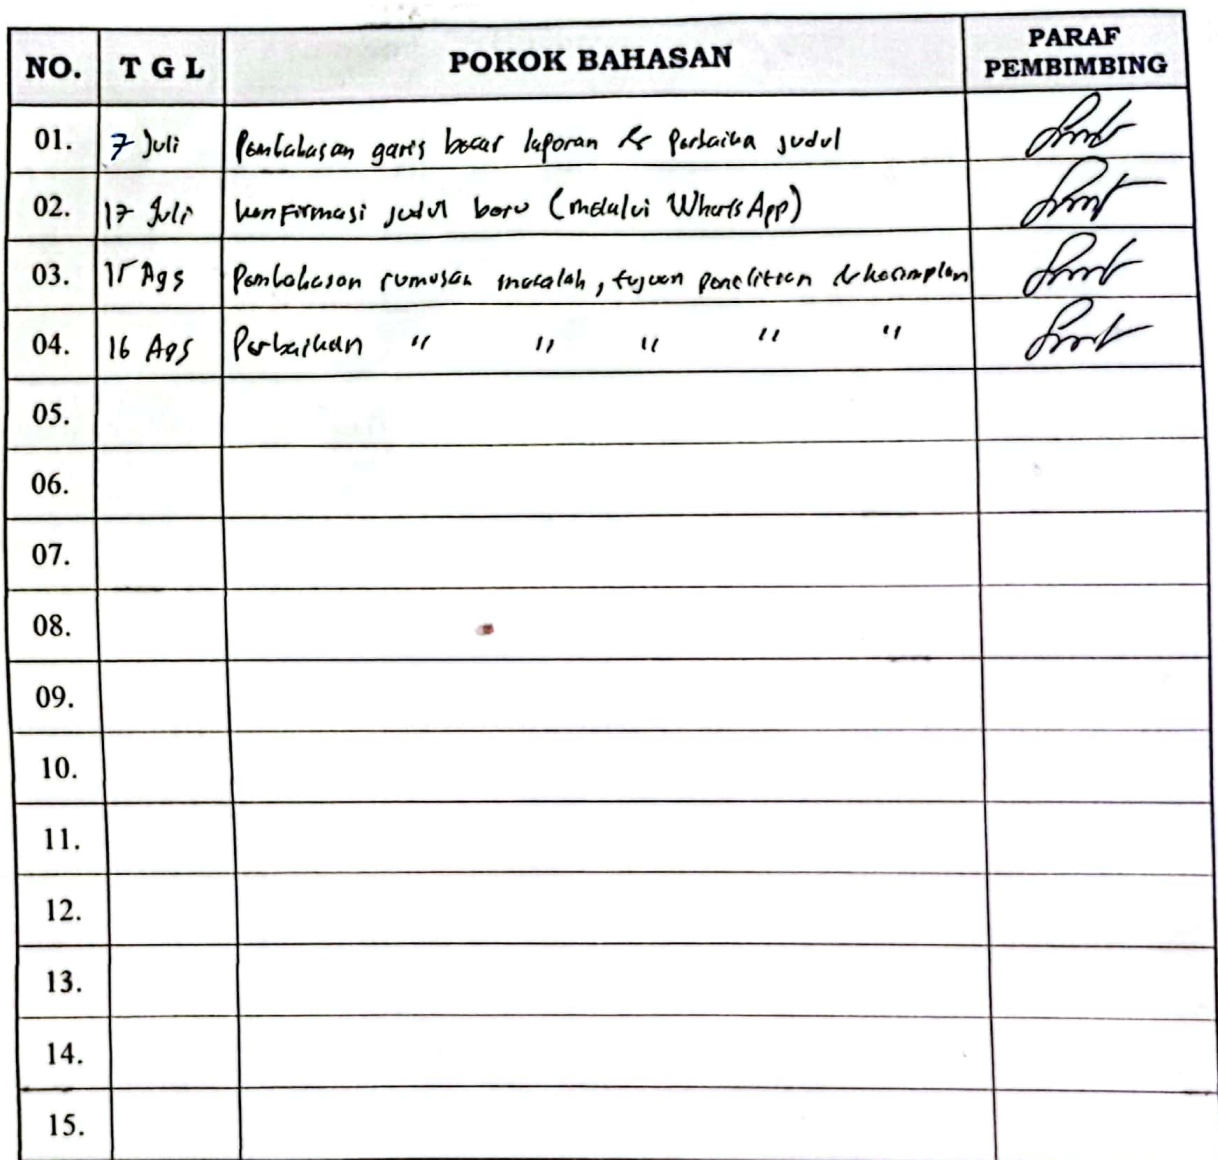 NO. T G L POKOK BAHASAN PARAF PEMBIMBING
01. 7 Juli Pembahasan garis besar laporan & Perbaika judul
02. 17 Juli konfirmasi judul baru (melalui WhatsApp)
03. 15 Ags Pembahasan rumusan masalah, tujuan penelitian & kesimpulan
04. 16 Ags Perbaikan " " " " "
05.
06.
07.
08.
09.
10.
11.
12.
13.
14.
15.